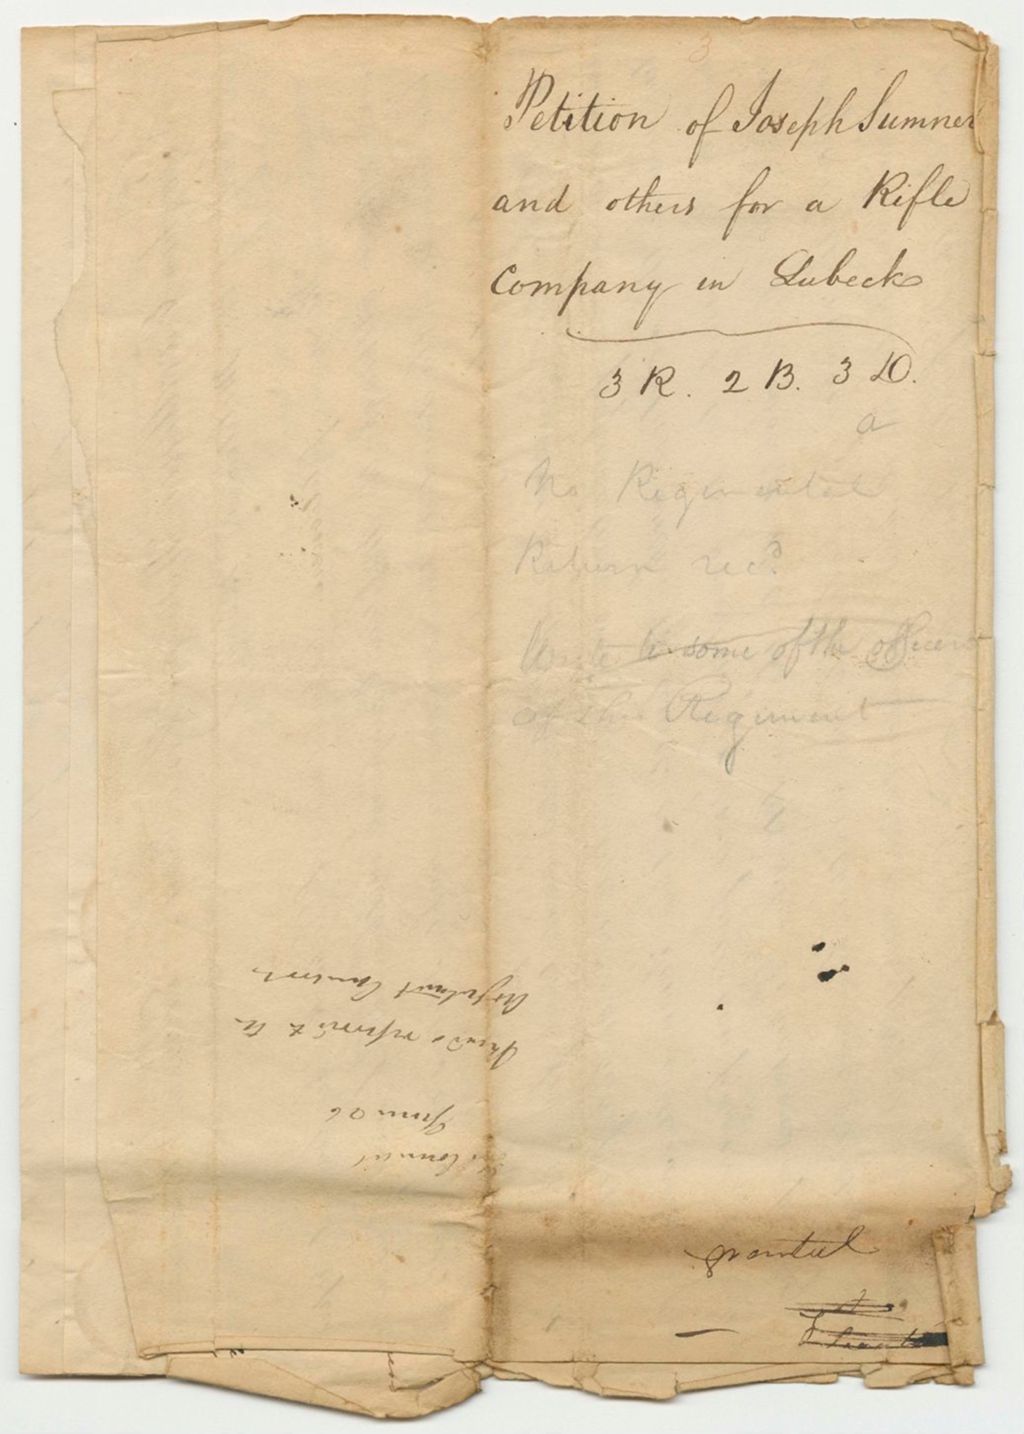 3
Petition of Joseph Sumner
and others for a Rifle
Company in Lubeck
3 R. 2 B. 3 D.
a
No Regimental
Return recd.
Write to some of the officers
of this Regiment
In Council
June 26
Read & referred to the
Adjutant General
granted